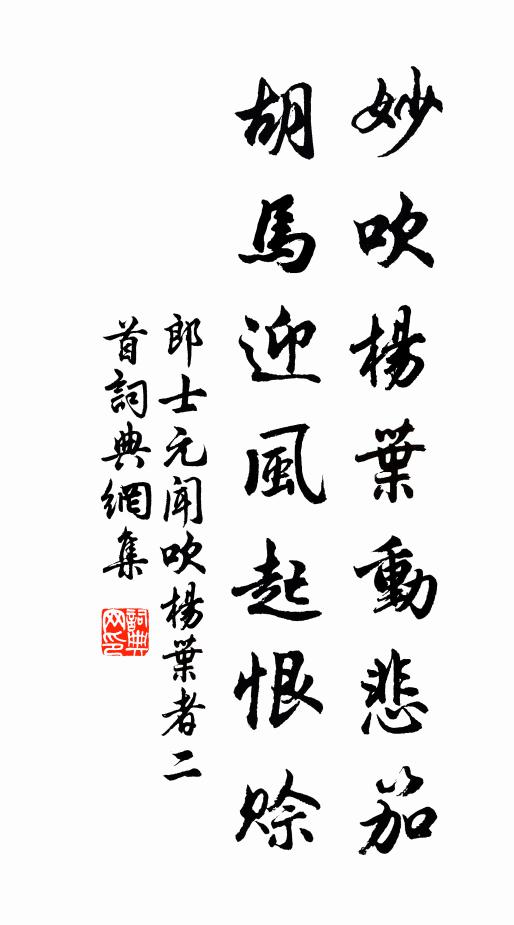 妙吹楊葉動悲笳
胡馬迎風起恨賒
郎士元聞吹楊葉者二
首詞典網集
詞典
网印